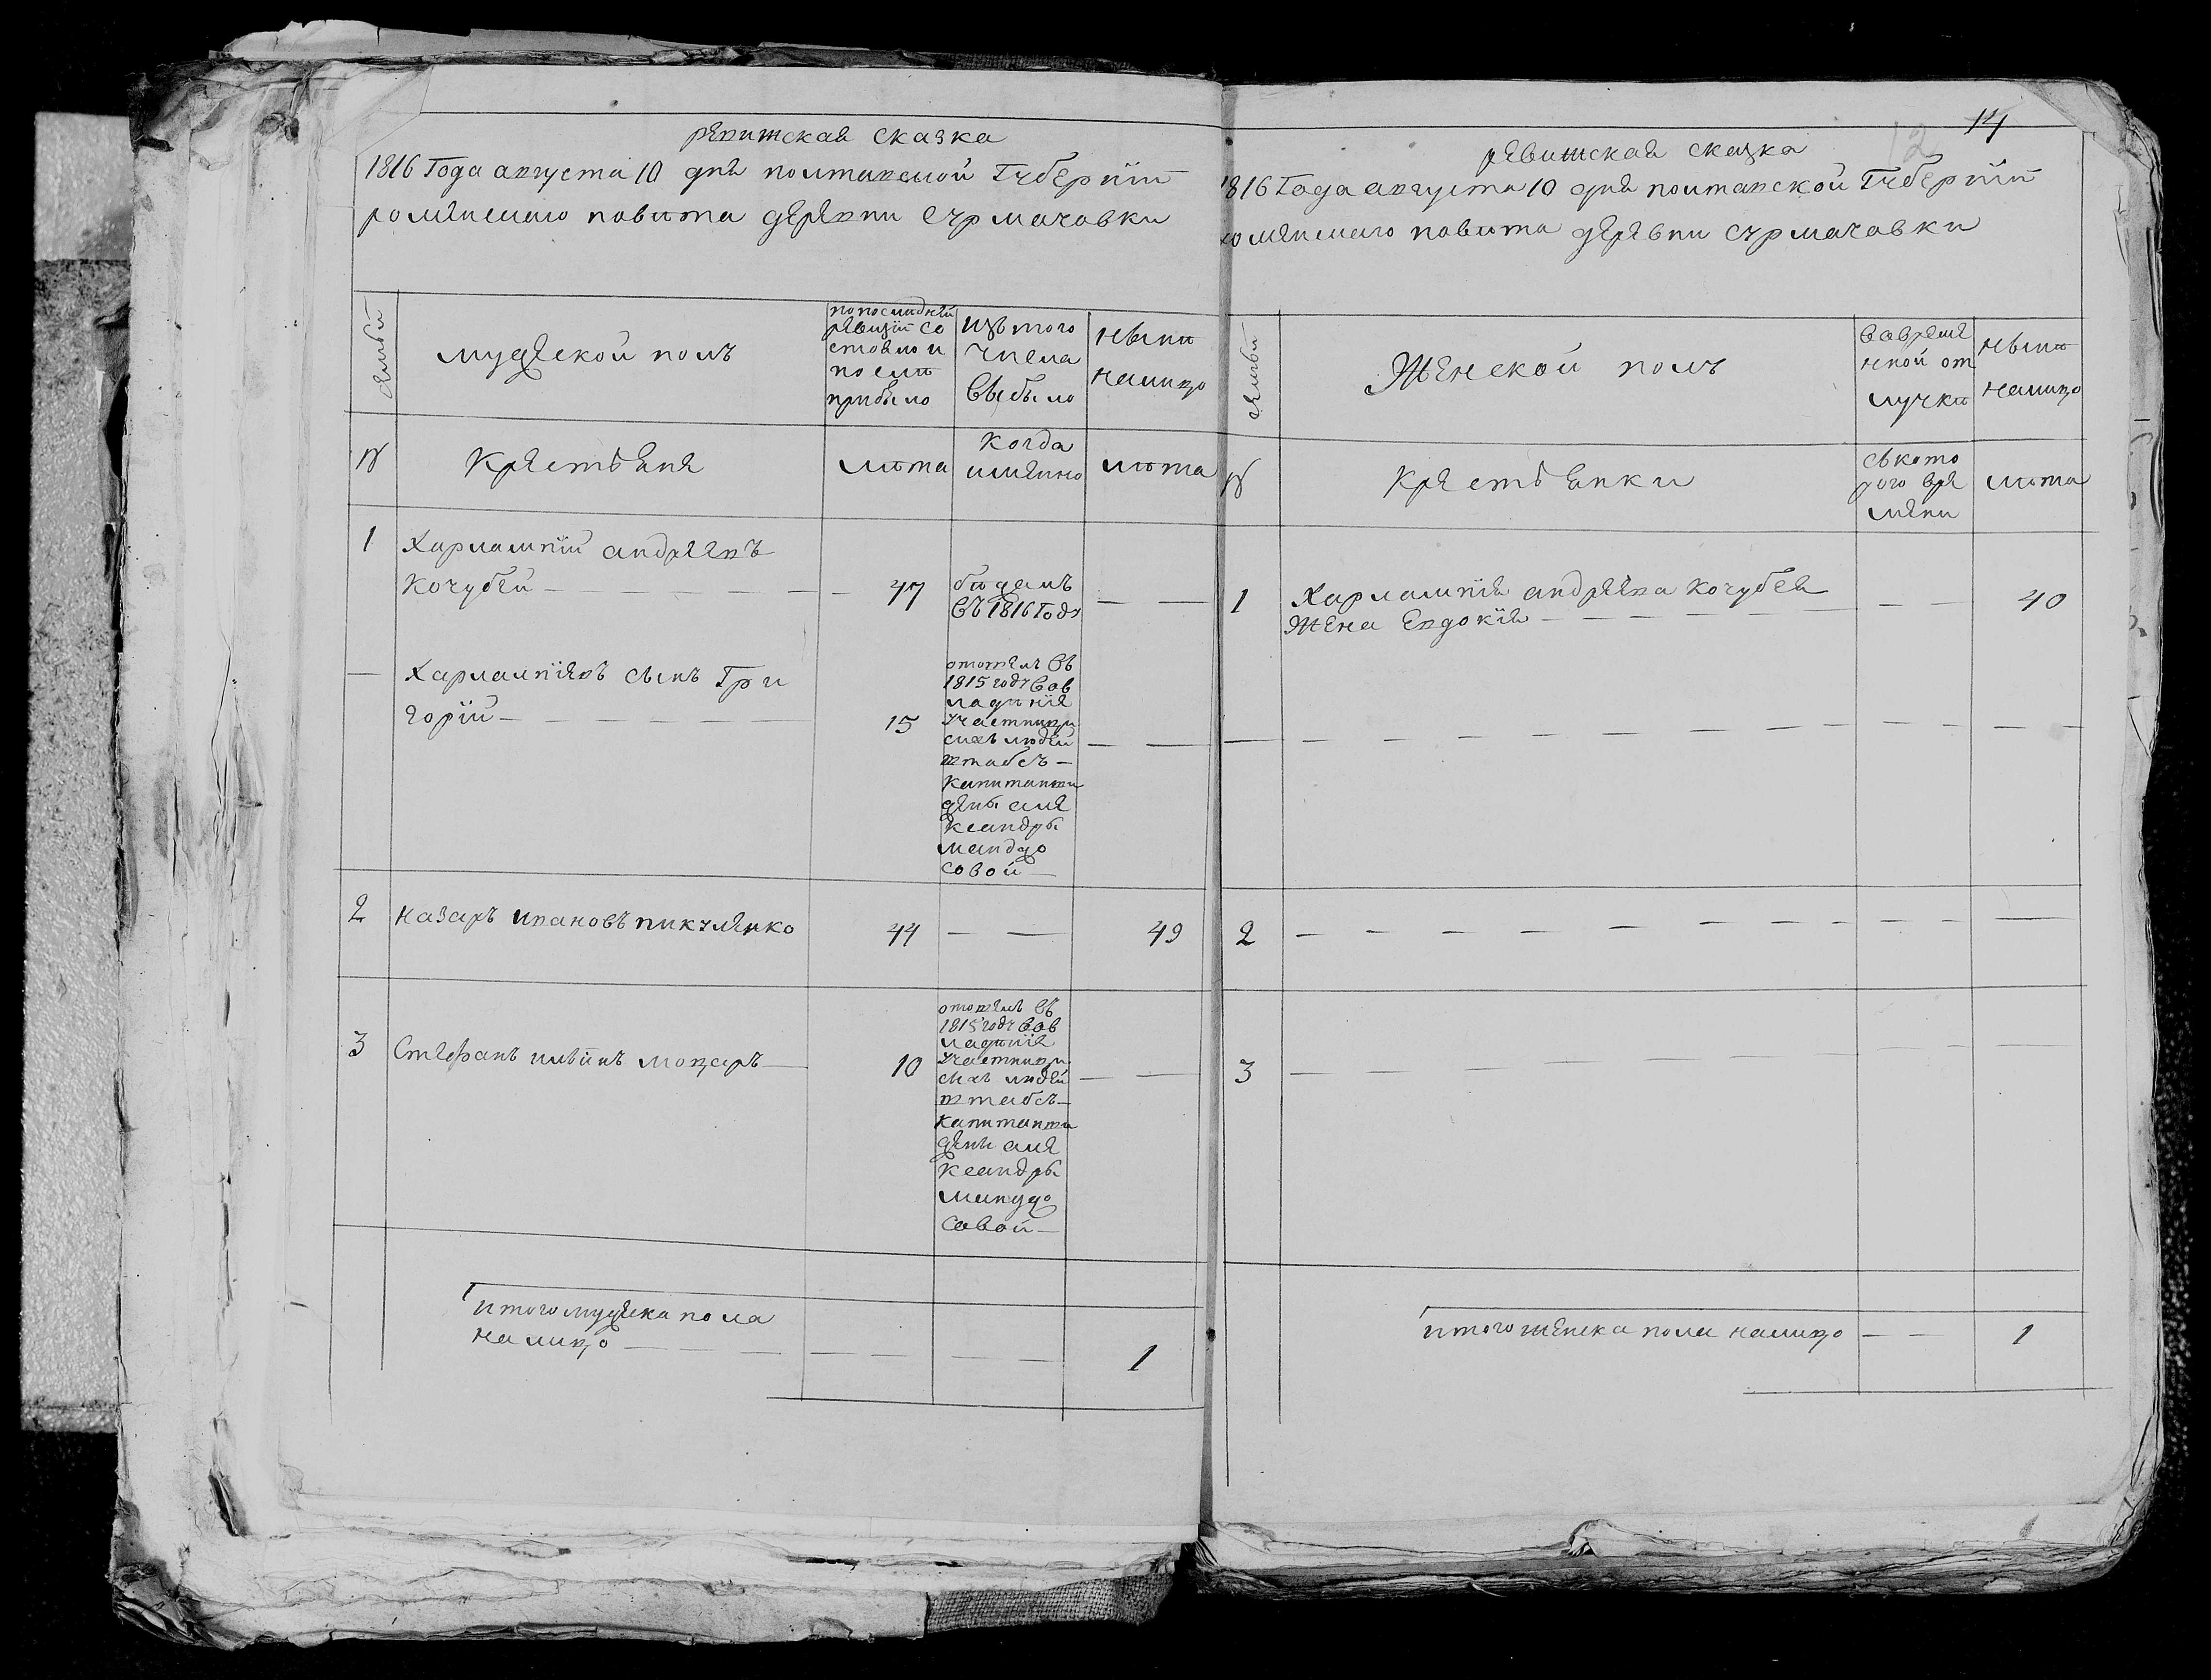 ревижская сказка
1816 Года августа 10 дня полтавской Губерніи
роменскаго повѣта деревни Сурмачовки
семьи
мужеской полъ
по последней
ревизіи со
стояло и
послѣ
прибыло
изъ того
числа
выбыло
нынѣ
налицо
№
Крестьяне
лѣта
когда
именно
лѣта
1
Харлампій андреевъ
Кочубей
47
бѣжалъ
въ 1816 Году
Харлампіевъ сынъ Гри
горій
15
отошелъ въ
1815 году во в
ладѣніе
участницы
сихъ людей
штабсъ
капитанши
жены але
ксандры
мандзо
совой
2
Назаръ ивановъ никуленко
44
49
3
Стефанъ
10
отошелъ въ
1815 году во в
ладѣніе
участницы
сихъ людей
штабсъ
капитанши
жены але
ксандры
мандзо
совой
итого мужеска пола
налицо
1
14
12
ревижская сказка
1816 Года августа 10 дня полтавской Губерніи
роменскаго повѣта деревни сурмачовки
семьи
Женской полъ
во време
нной от
лучкѣ
нынѣ
налицо
№
Крестьянки
съ кото
рого вре
мени
лѣта
1
Харлампія андреева Кочубея
жена Евдокія
40
2
3
итого женска пола налицо
1